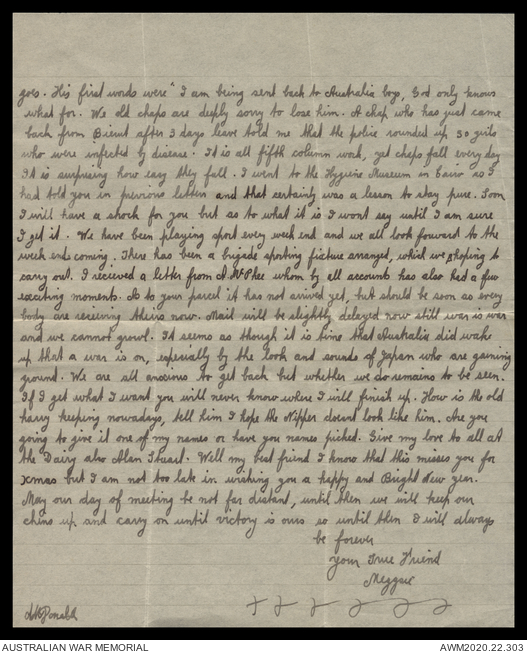 goes. His first words were "I am being sent back to Australia boys, God only knows
what for. We old chaps are deeply sorry to lose him. A chap who has just came
back from Bierut after 3 days leave told me that the police rounded up 30 girls
who were infected by disease. It is all fifth column work, yet chaps fall every day
It is surprising how easy they fall. I went to the Hygine Museum in Cairo as I
had told you in previous letters and that certainly was a lesson to stay pure. Soon
I will have a shock for you but as to what it is I wont say until I am sure
I get it. We have been playing sport every week end and we all look foward to the
week ends coming. There has been a brigade sporting picture arranged, which we hoping to
carry out. I recieved a letter from A McPhee whom by all accounts has also had a few
exciting moments. As to your parcel it has not arrived yet, but should be soon as every
body are recieving theirs now. Mail will be slightly delayed now still war is war
and we cannot growl. It seems as though it is time that Australia did wake
up that a war is on, especially by the look and sounds of Japan who are gaining
ground. We are all anxious to get back but whether we do remains to be seen.
If I get what I want you will never know where I will finish up. How is the old
harry keeping nowadays, tell him I hope the Nipper doesnt look like him. Are you
going to give it one of my names or have you names picked. Give my love to all at
the Dairy also Alan Stuart. Well my best friend I know that this misses you for
Xmas but I am not too late in wishing you a happy and Bright New year.
May our day of meeting be not far distant, until then we will keep our
chins up and carry on until victory is ours so until then I will always
be forever
your True Friend
Megget
AUSTRALIAN WAR MEMORIAL
AWM2020.22.303